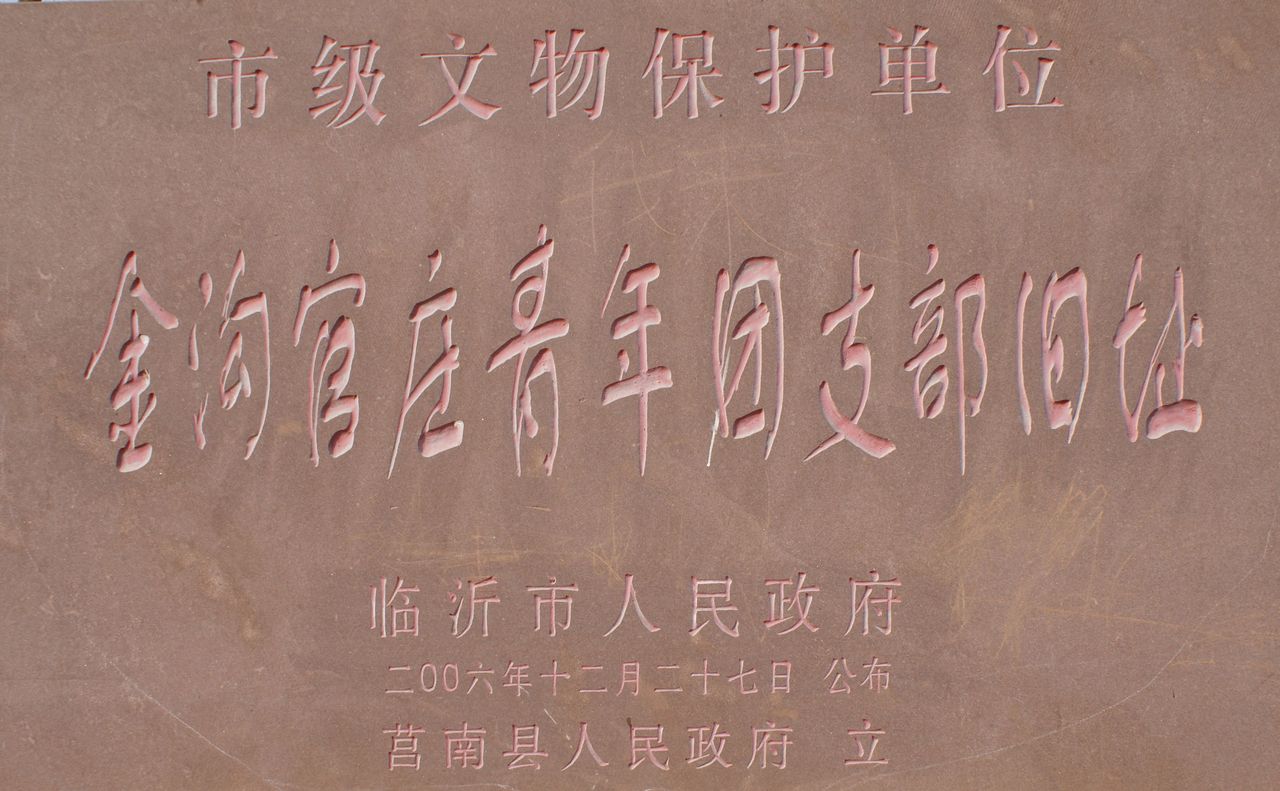 市级文物保护单位
金沟官庄青年团支部旧址
临沂市人民政府
二00六年十二月二十七日 公布
莒南县人民政府 立